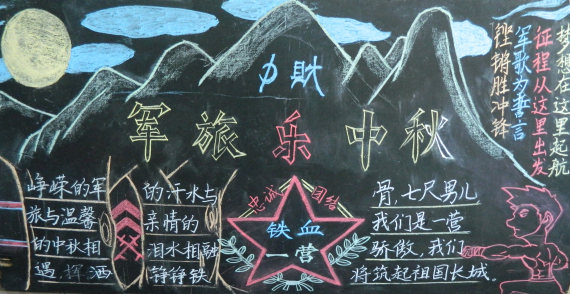 梦想在这里起航
征程从这里出发
军歌为誓言
铿锵胜冲锋
军旅乐中秋
峥嵘的军
旅与温馨
的中秋相
遇,挥洒
的汗水与
亲情的
泪水相融
铮铮铁
忠诚 团结
铁血
一营
骨,七尺男儿
我们是一营
骄傲,我们
将筑起祖国长城。